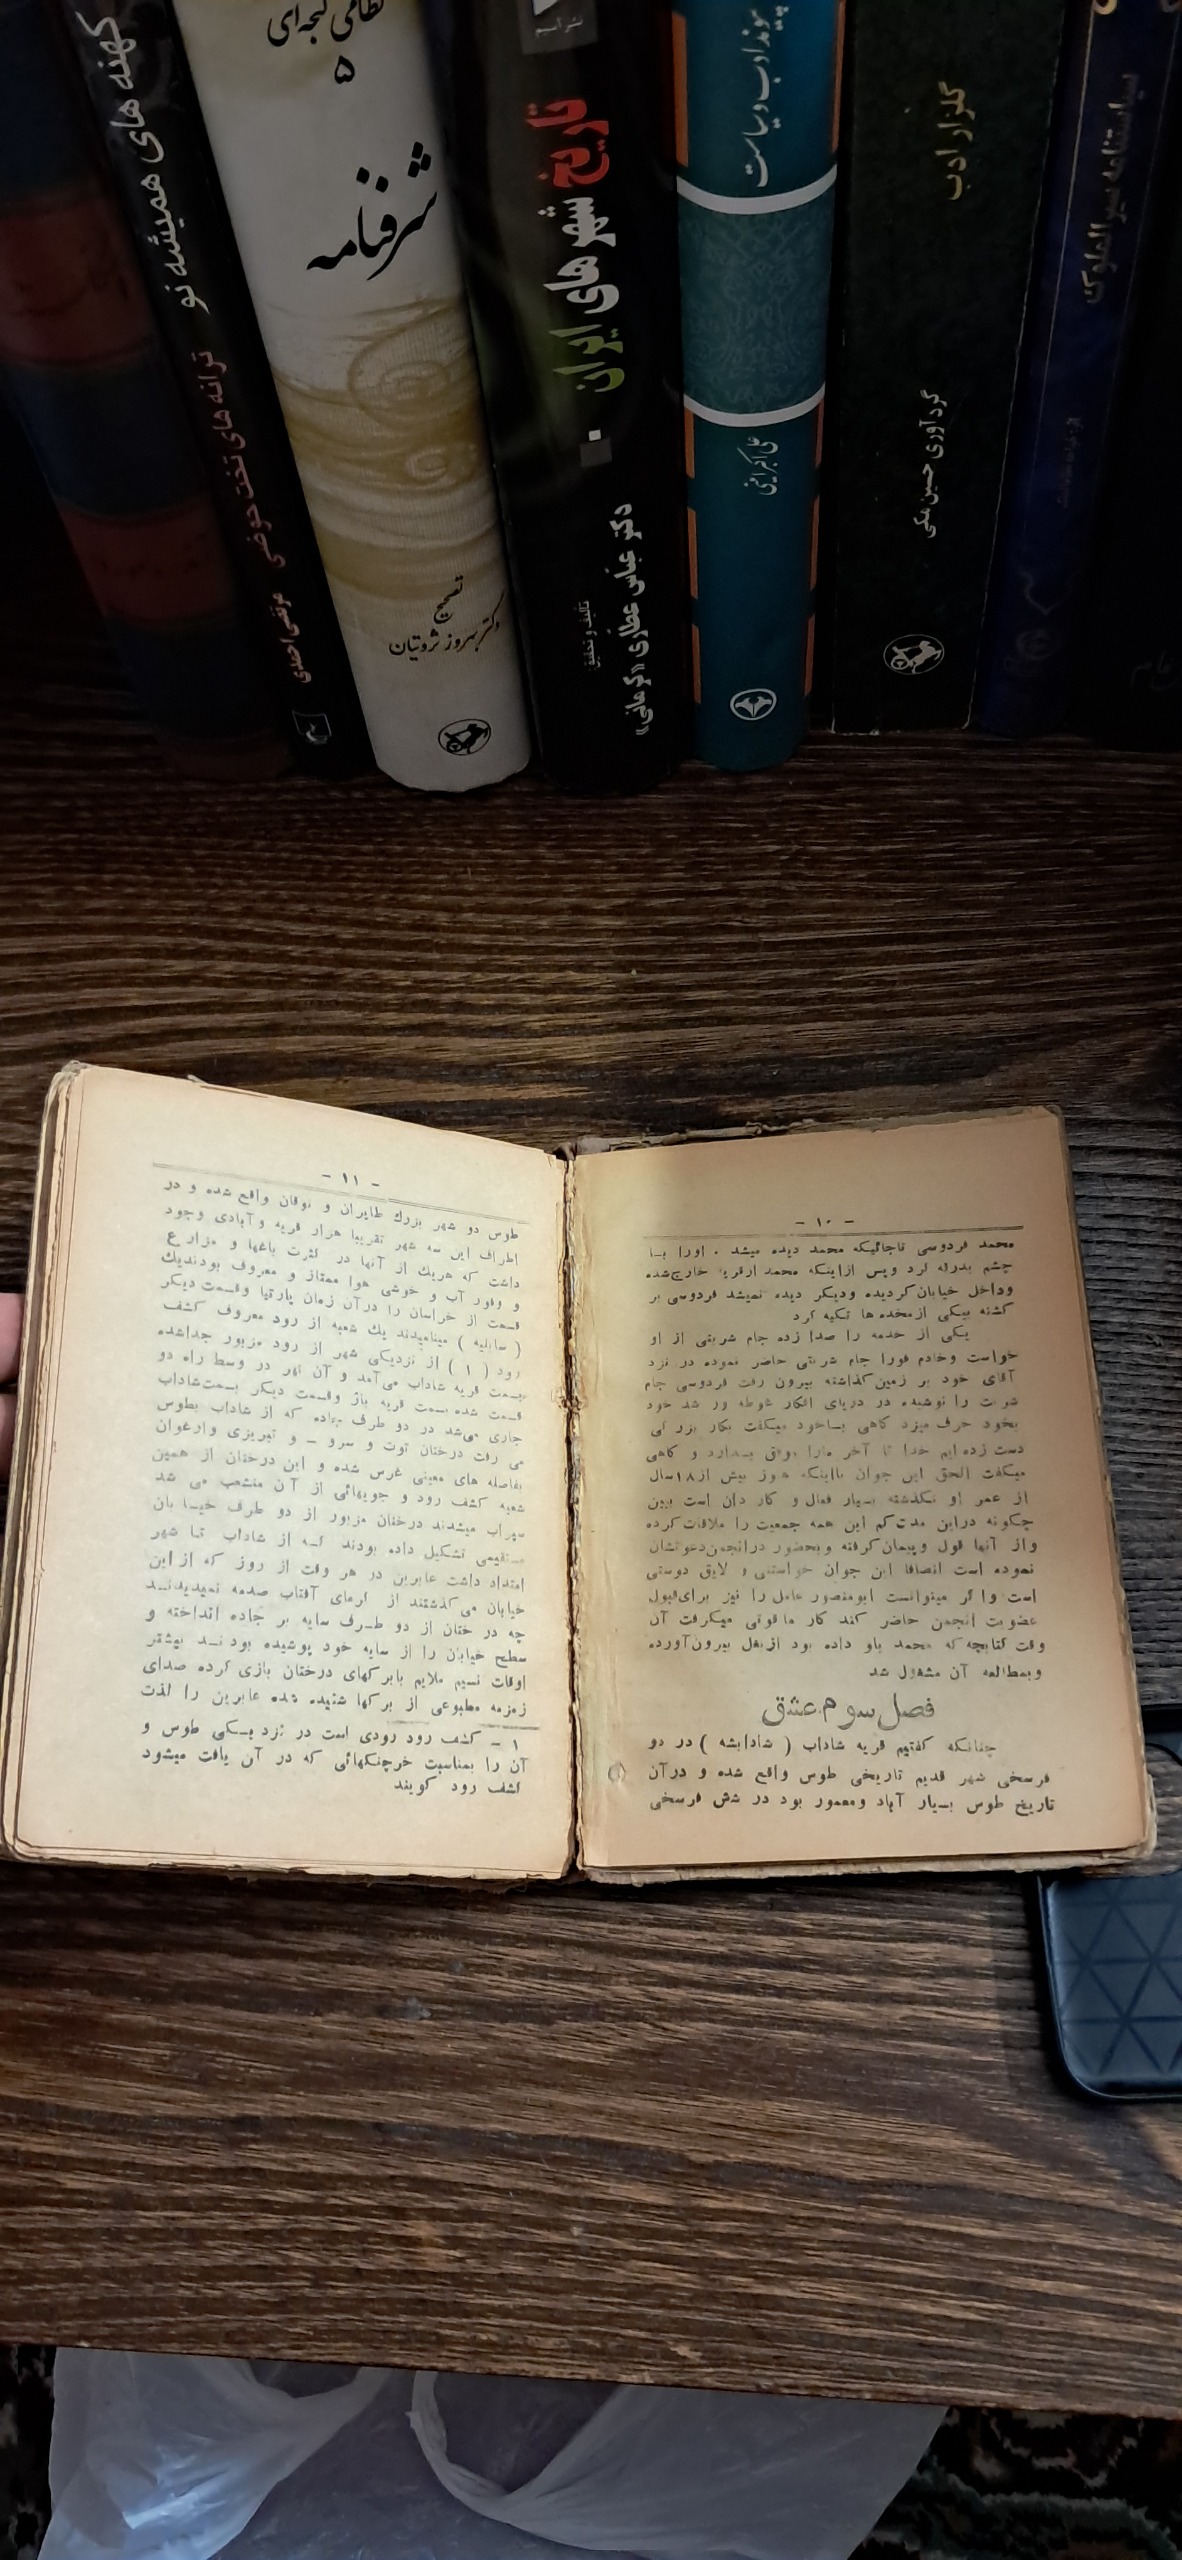 کهنه های همیشه نو
ترانه های تخت حوضی
مرتضی احمدی
نظامی گنجه‌ای
۵
شرفنامه
تصحیح
دکتر بهروز ثروتیان
تاریخ شهرهای ایران
تالیف و تحقیق
دکتر عباس عطاری «کرمانی»
پیوند ادب و سیاست
گلزار ادب
گردآوری حسین مکی
سیاستنامه سیرالملوک
- ۱۰ -
محمد فردوسی تاجائیکه محمد دیده میشد . اورا با
چشم بدرقه کرد و پس ازاینکه محمد ازقریه خارج‌شده
وداخل خیابان گردیده ودیگر دیده نمیشد فردوسی بر
گشته بیکی ازمخده ها تکیه کرد
یکی از خدمه را صدا زده جام شربتی از او
خواست وخادم فورا جام شربتی حاضر نموده در نزد
آقای خود بر زمین گذاشته بیرون رفت فردوسی جام
شربت را نوشیده در دریای افکار غوطه ور شد خود
بخود حرف میزد گاهی باخود میگفت بکار بزرگی
دست زده ایم خدا تا آخر مارا موفق بدارد و گاهی
میگفت الحق این جوان بااینکه هنوز بیش از۱۸سال
از عمر او نگذشته بسیار فعال و کار دان است ببین
چگونه دراین مدت‌کم این همه جمعیت را ملاقات‌کرده
واز آنها قول وپیمان‌گرفته وبحضور درانجمن‌دعوتشان
نموده است انصافا این جوان خواستنی و لایق دوستی
است واگر میتوانست ابومنصور عامل را نیز برای‌قبول
عضویت انجمن حاضر کند کار ما قوتی میگرفت آن
وقت کتابچه‌که محمد باو داده بود ازبغل بیرون‌آورده
وبمطالعه آن مشغول شد
فصل سوم عشق
چنانکه گفتیم قریه شاداب ( شادابشه ) در دو
فرسخی شهر قدیم تاریخی طوس واقع شده و درآن
تاریخ طوس بسیار آباد ومعمور بود در شش فرسخی
- ۱۱ -
طوس دو شهر بزرگ طابران و نوقان واقع شده و در
اطراف این سه شهر تقریبا هزار قریه و آبادی وجود
داشت که هریك از آنها در کثرت باغها و مزارع
و وفور آب و خوشی هوا ممتاز و معروف بودندیك
قسمت از خراسان را درآن زمان پارتیا وقسمت دیگر
( سابلیه ) مینامیدند یك شعبه از رود معروف کشف
رود ( ۱ ) از نزدیکی شهر از رود مزبور جداشده
بسمت قریه شاداب می‌آمد و آن نهر در وسط راه دو
قسمت شده بسمت قریه باژ وقسمت دیگر بسمت‌شاداب
جاری می‌شد در دو طرف جاده که از شاداب بطوس
می رفت درختان توت و سرو - و تبریزی وارغوان
بفاصله های معینی غرس شده و این درختان از همین
شعبه کشف رود و جویهائی از آن منشعب می شد
سیراب میشدند درختان مزبور از دو طرف خیابان
مستقیمی تشکیل داده بودند که از شاداب تا شهر
امتداد داشت عابرین در هر وقت از روز که از این
خیابان می گذشتند از گرمای آفتاب صدمه نمیدیدند
چه درختان از دو طرف سایه بر جاده انداخته و
سطح خیابان را از سایه خود پوشیده بودند بیشتر
اوقات نسیم ملایم بابرگهای درختان بازی کرده صدای
زمزمه مطبوعی از برگها شنیده شده عابرین را لذت
۱ - کشف رود رودی است در نزدیکی طوس و
آن را بمناسبت خرچنگهائی که در آن یافت میشود
کشف رود گویند